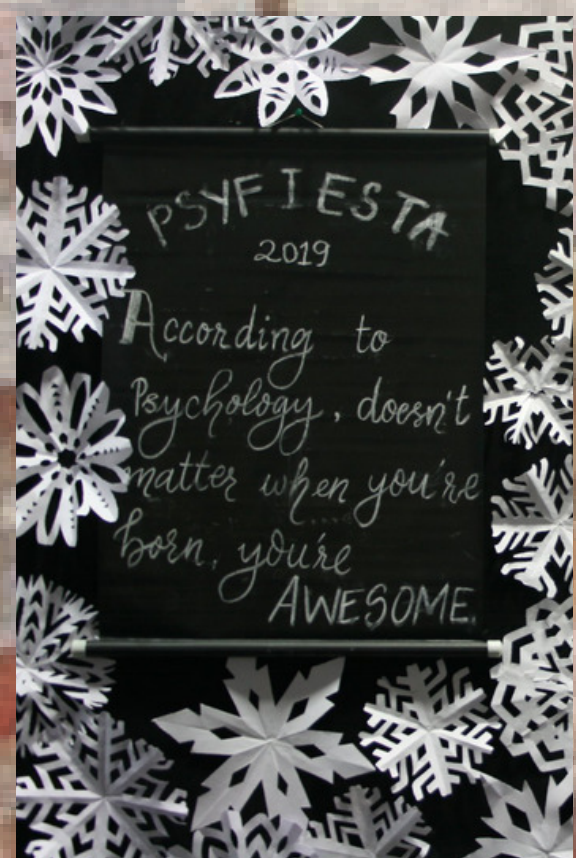 PSYFIESTA
2019
According to
Psychology, doesn't
matter when you're
born, you're
AWESOME.